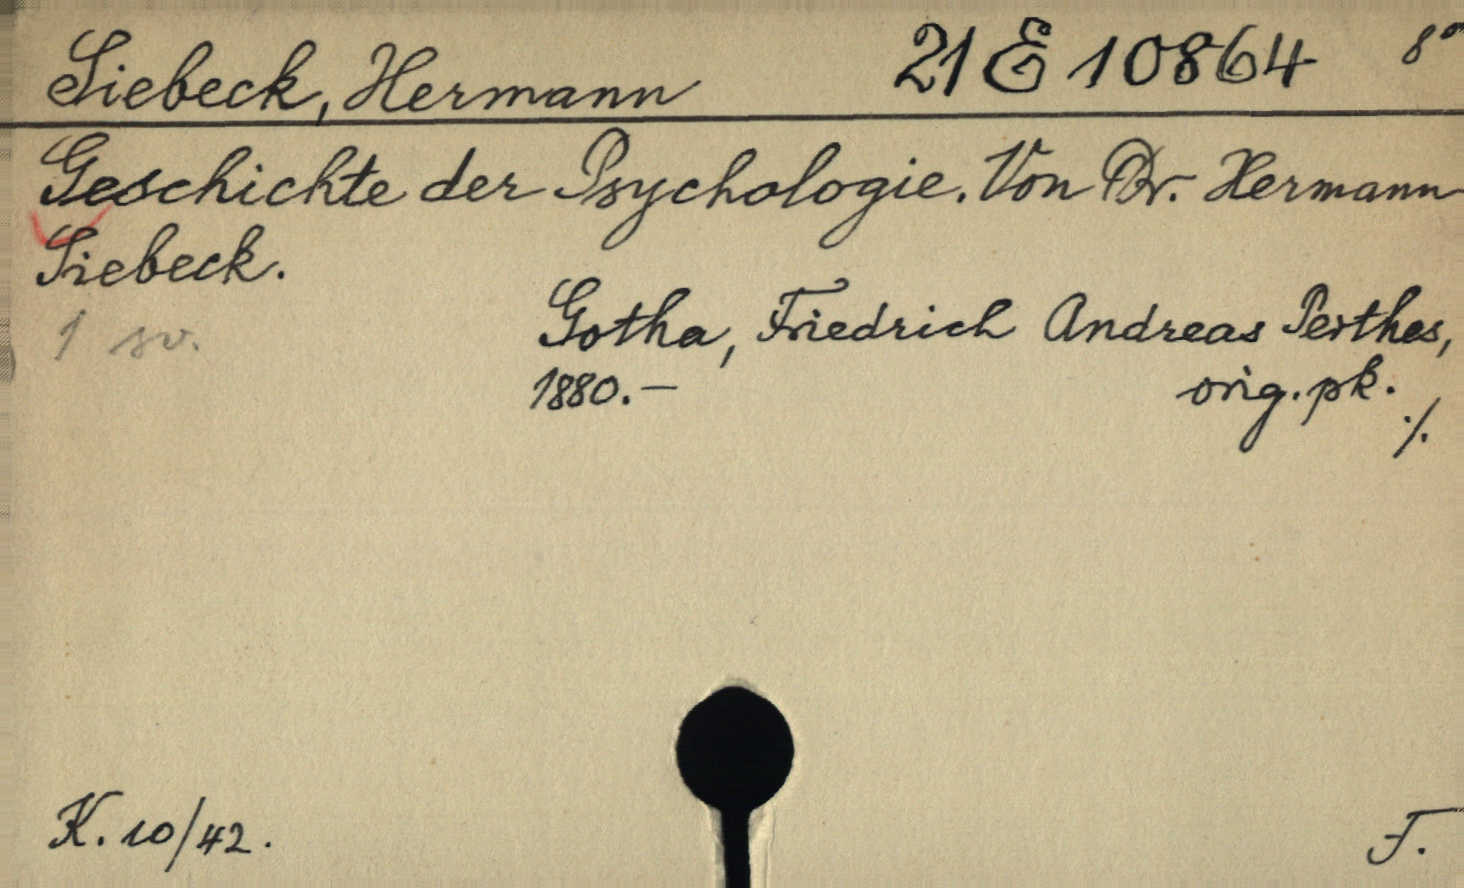 Siebeck, Hermann 21 E 10864 8°
Geschichte der Psychologie. Von Dr. Hermann
Siebeck.
1 sv. Gotha, Friedrich Andreas Perthes,
1880.— orig. pk.
./.
K. 10/42. F.